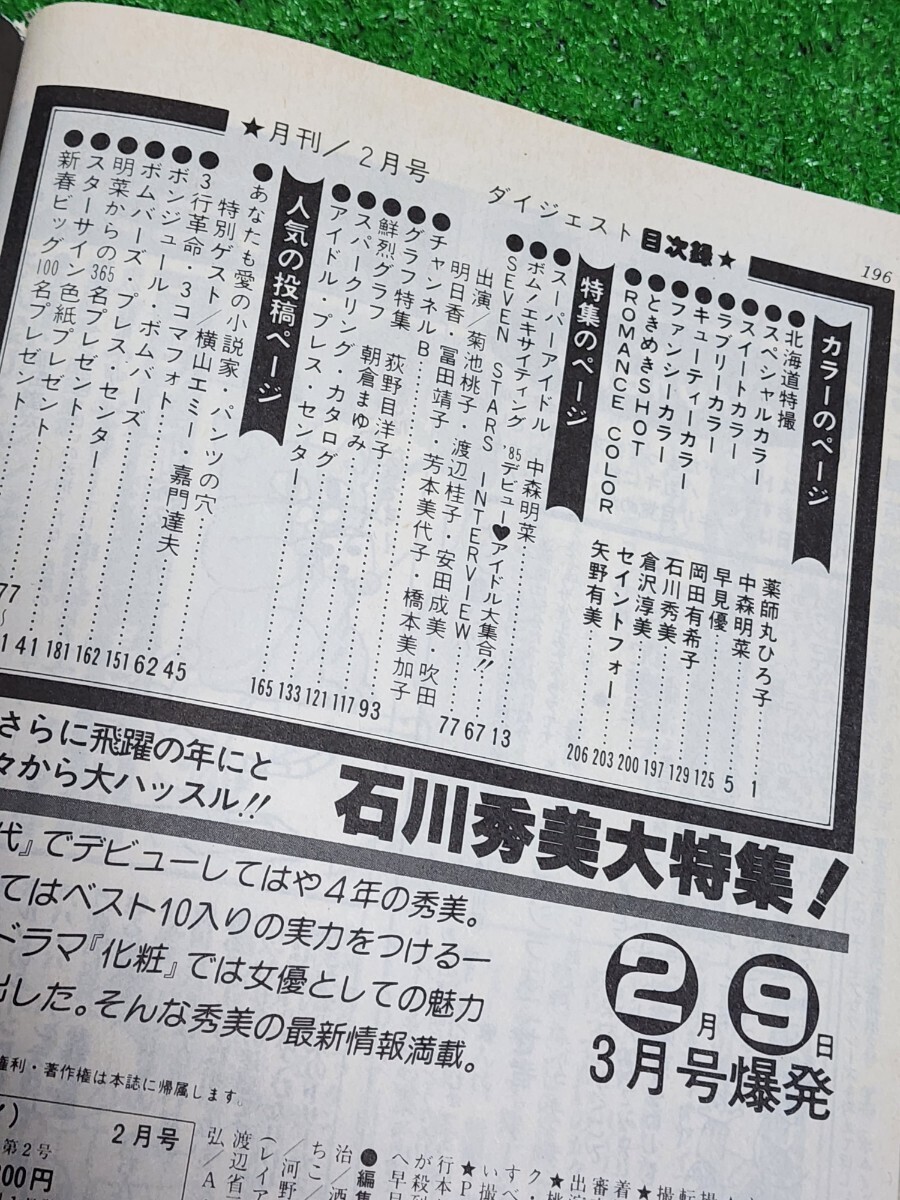 196
★月刊/2月号 ダイジェスト目次録★
カラーのページ
●北海道特撮 薬師丸ひろ子……1
●スペシャルカラー 中森明菜……5
●スイートカラー 早見優……125
●ラブリーカラー 岡田有希子……129
●キューティーカラー 石川秀美……197
●ファンシーカラー 倉沢淳美……200
●ときめきSHOT セイントフォー……203
●ROMANCE COLOR 矢野有美……206
特集のページ
●スーパーアイドル 中森明菜……13
●ボム!エキサイティング '85デビュー♥アイドル大集合!!……67
●SEVEN STARS INTERVIEW……77
出演/菊池桃子・渡辺桂子・安田成美・吹田
明日香・冨田靖子・芳本美代子・橋本美加子
●チャンネルB……93
●グラフ特集 荻野目洋子……117
●鮮烈グラフ 朝倉まゆみ……121
●スパークリング カタログ……133
●アイドル・プレス・センター……165
人気の投稿ページ
●あなたも愛の小説家・パンツの穴……45
特別ゲスト/横山エミー・嘉門達夫
●3行革命・3コマフォト……62
●ボンジュール・ボムバーズ……151
●ボムバーズ・プレス・センター……162
●明菜からの365名プレゼント……181
●スターサイン色紙プレゼント……41
●新春ビッグ100名プレゼント……
77
〜
さらに飛躍の年にと
々から大ハッスル!!
石川秀美大特集!
代』でデビューしてはや4年の秀美。
てはベスト10入りの実力をつける一
ドラマ『化粧』では女優としての魅力
出した。そんな秀美の最新情報満載。
2月9日
3月号爆発
権利・著作権は本誌に帰属します。
2月号
第2号
00円
●編集